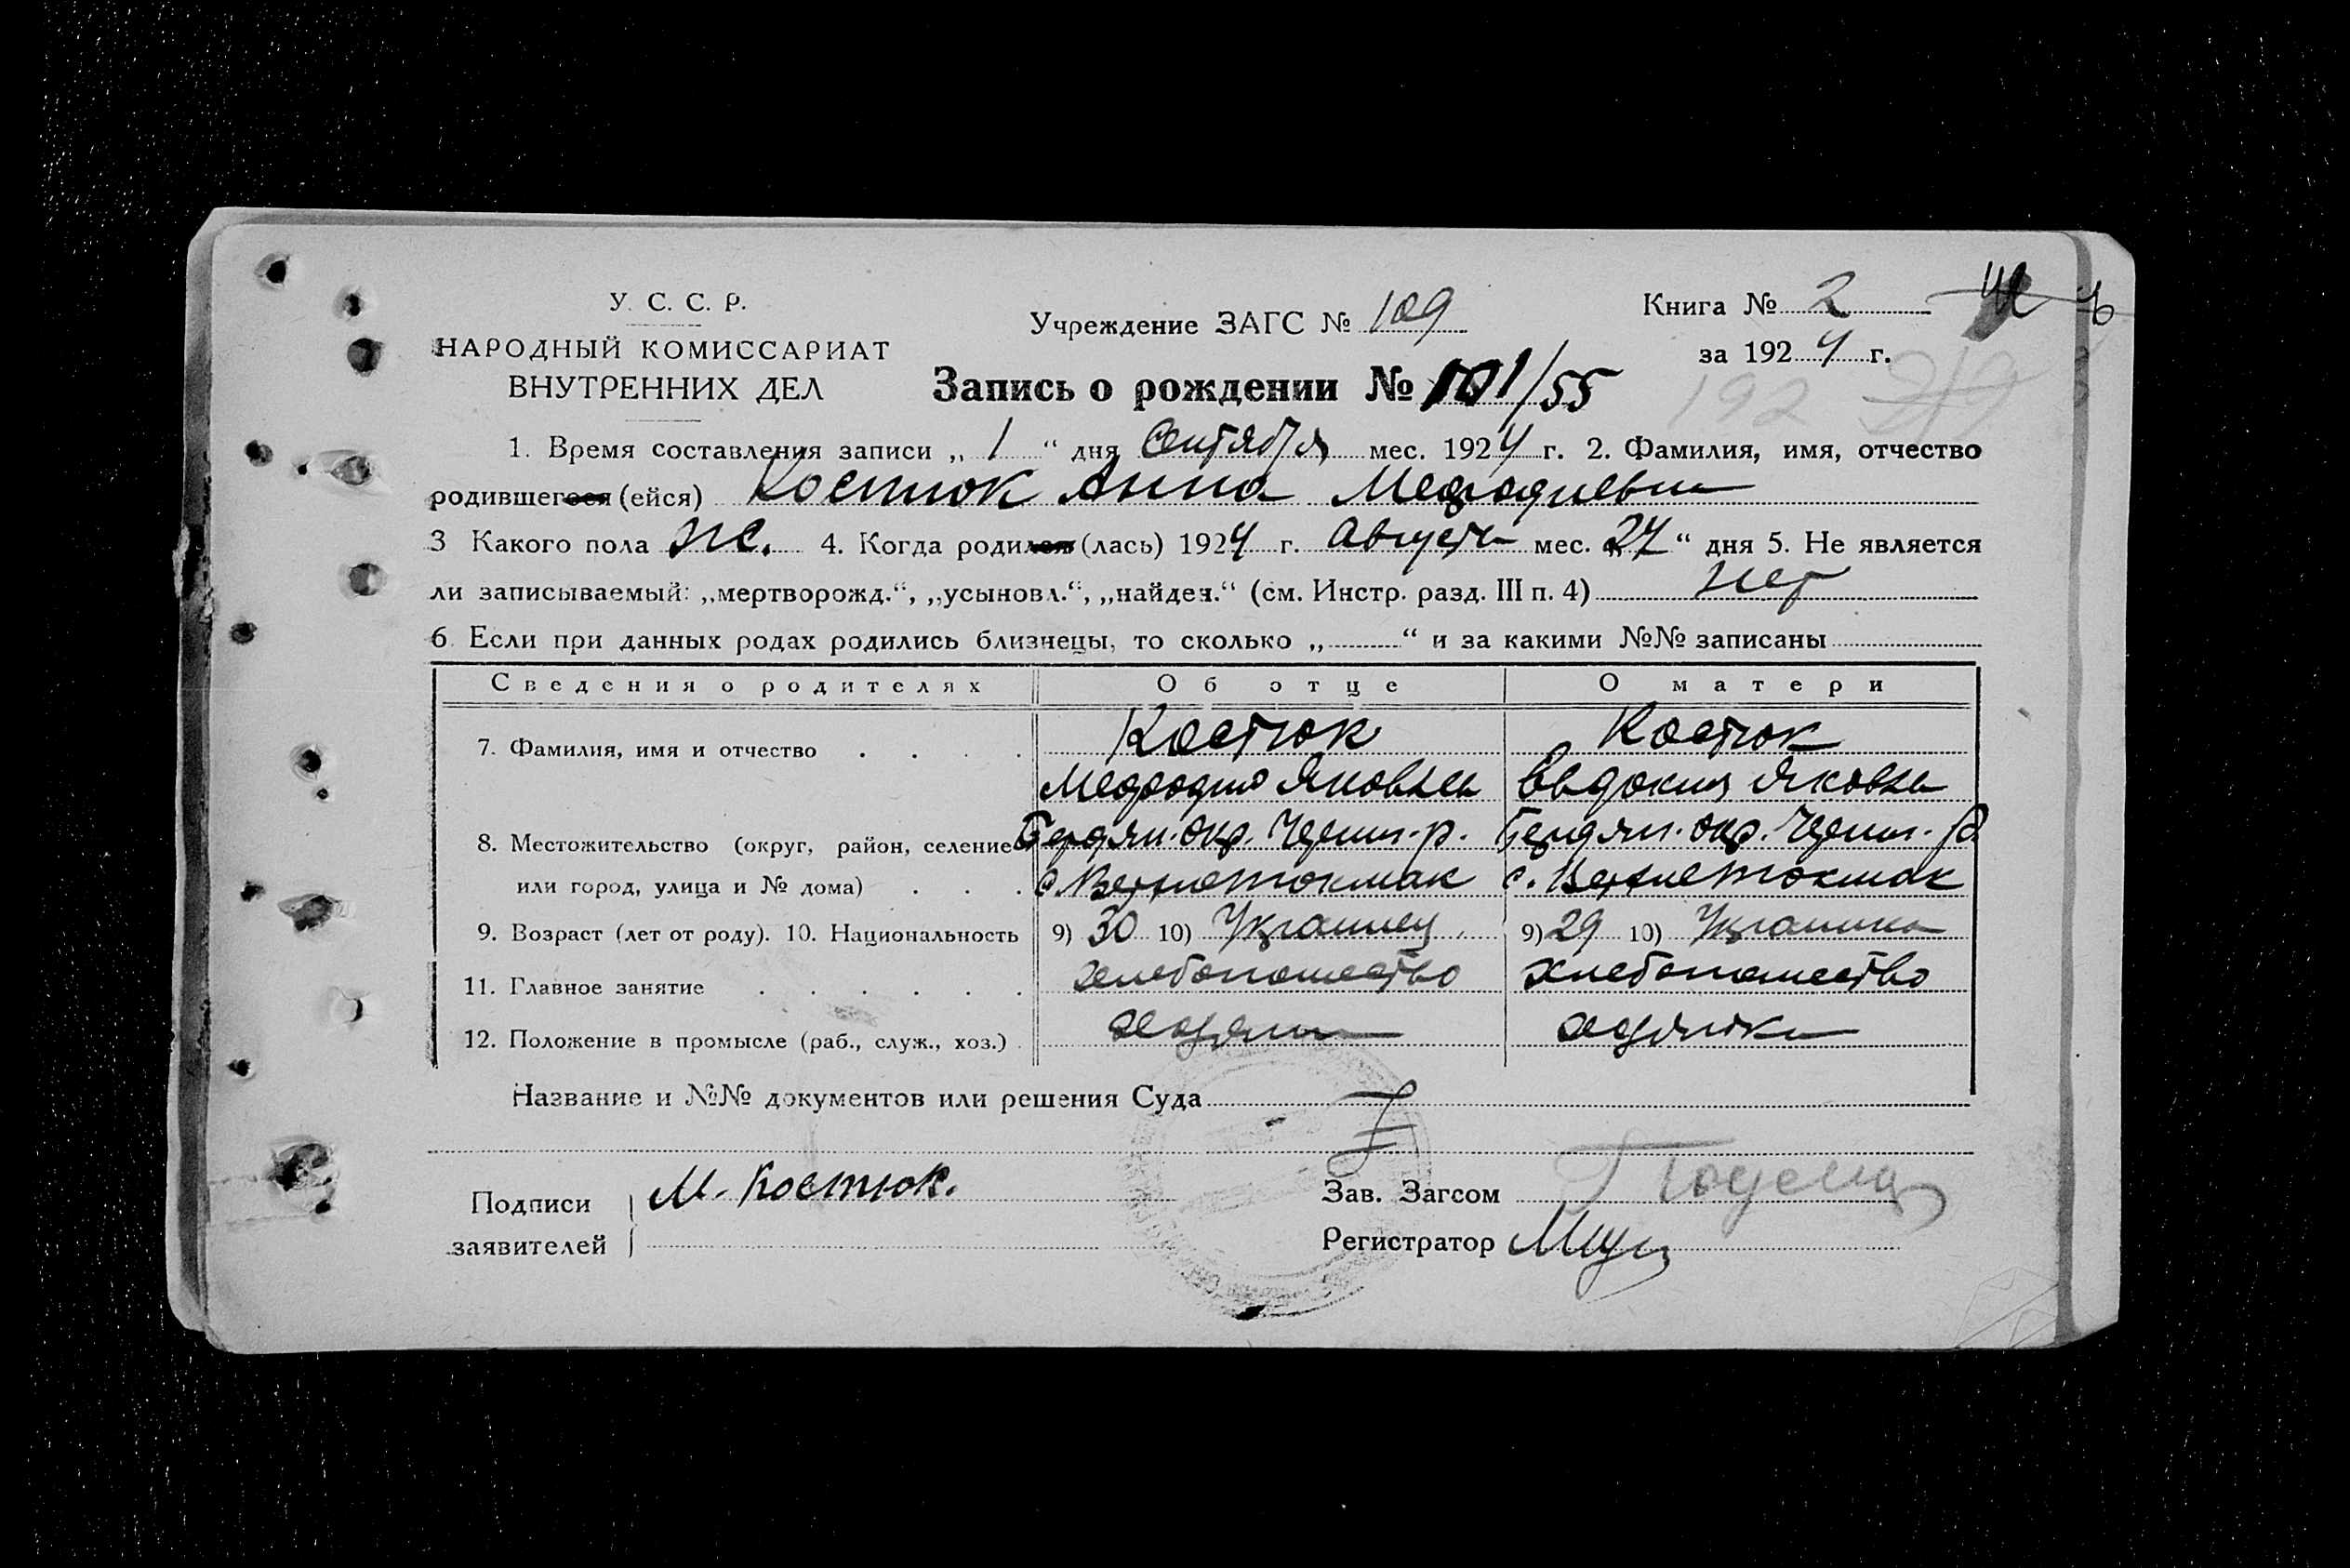 У. С. С. Р.
НАРОДНЫЙ КОМИССАРИАТ
ВНУТРЕННИХ ДЕЛ
Учреждение ЗАГС № 109
Книга № 2
за 1924 г.
Запись о рождении № 101/55
192
1. Время составления записи „ 1 “ дня Сентября мес. 1924 г. 2. Фамилия, имя, отчество
родившегося (ейся) Костюк Анна Мефодиевна
3 Какого пола ж. 4. Когда родился (лась) 1924 г. Августа мес. „27“ дня 5. Не является
ли записываемый: „мертворожд.“, „усыновл.“, „найден.“ (см. Инстр. разд. III п. 4) Нет
6. Если при данных родах родились близнецы, то сколько „ “ и за какими №№ записаны
Сведения о родителях Об отце О матери
7. Фамилия, имя и отчество Костюк Костюк
Мефодий Яковлев Евдокия Яковлев
8. Местожительство (округ, район, селение Бердян. окр. Черниг. р. Бердян. окр. Черниг. р
или город, улица и № дома) с. Верхнетокмак с. Верхнетокмак
9. Возраст (лет от роду). 10. Национальность 9) 30 10) Украинец 9) 29 10) Украинка
11. Главное занятие хлебопашество хлебопашество
12. Положение в промысле (раб., служ., хоз.) хозяин хозяйка
Название и №№ документов или решения Суда
Подписи заявителей М. Костюк.
Зав. Загсом
Регистратор